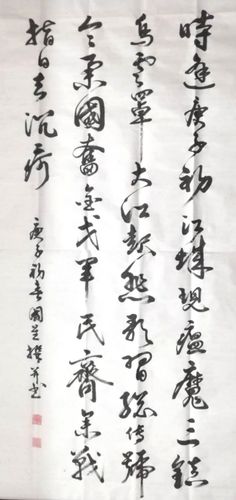 時逢庚子初江城現瘟魔三鎮
烏雲罩大江歌習總傳號
令舉國奮金戈軍民齊戰
指日去沉疴
庚子初春國撰並書